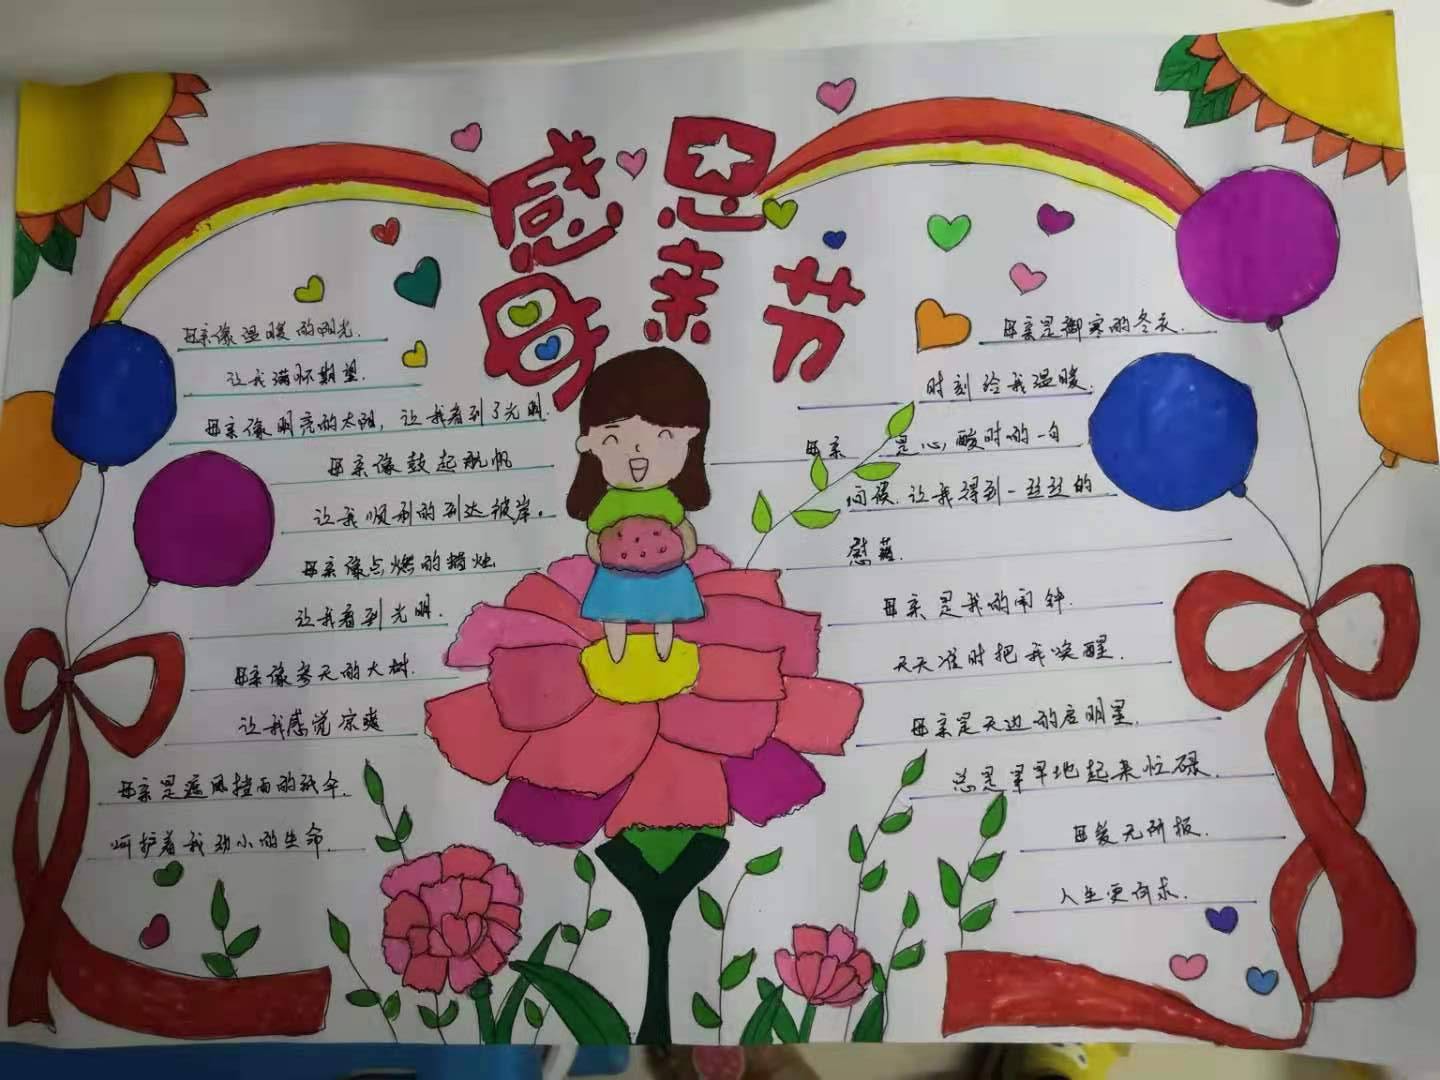 感恩
母亲节
母亲像温暖的阳光.
让我满怀期望.
母亲像明亮的太阳，让我看到了光明.
母亲像鼓起航帆
让我顺利的到达彼岸。
母亲像点燃的蜡烛
让我看到光明.
母亲像参天的大树.
让我感觉凉爽
母亲是遮风挡雨的纸伞.
呵护着我幼小的生命.
母亲是御寒的冬衣.
时刻给我温暖.
母亲 是心酸时的一句
问候.让我得到一丝丝的
慰藉.
母亲是我的闹钟.
天天准时把我唤醒.
母亲是天边的启明星.
总是早早地起来忙碌.
母爱无所报.
人生更何求.